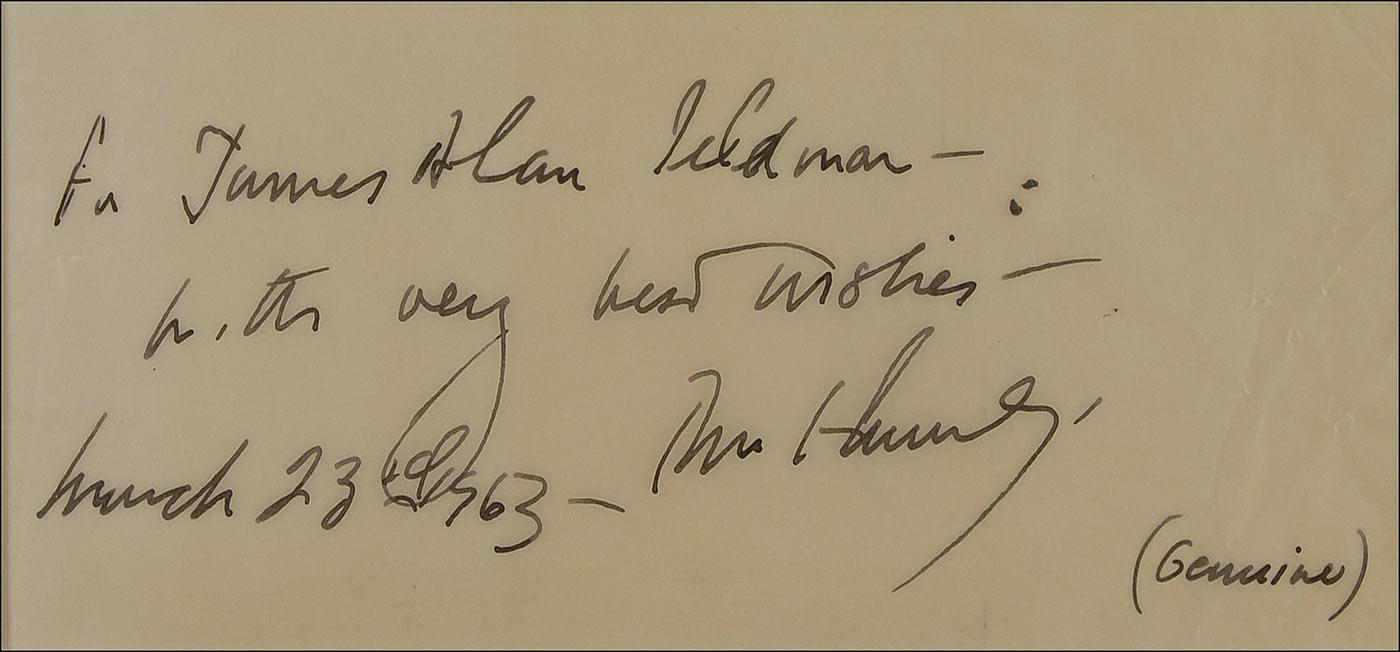 For James Alan Feldman —
with very best wishes —
March 23 1963 —
(Genuine)